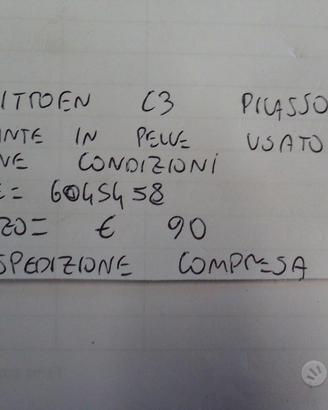 ITROEN C3 PICASSO
ANTE IN PELLE USATO
NE CONDIZIONI
E= 6045458
ZO= € 90
SPEDIZIONE COMPRESA